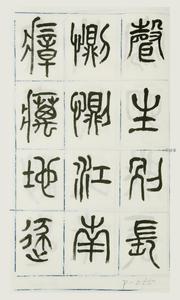 聲生別長
惻惻江南
瘴癘地逐